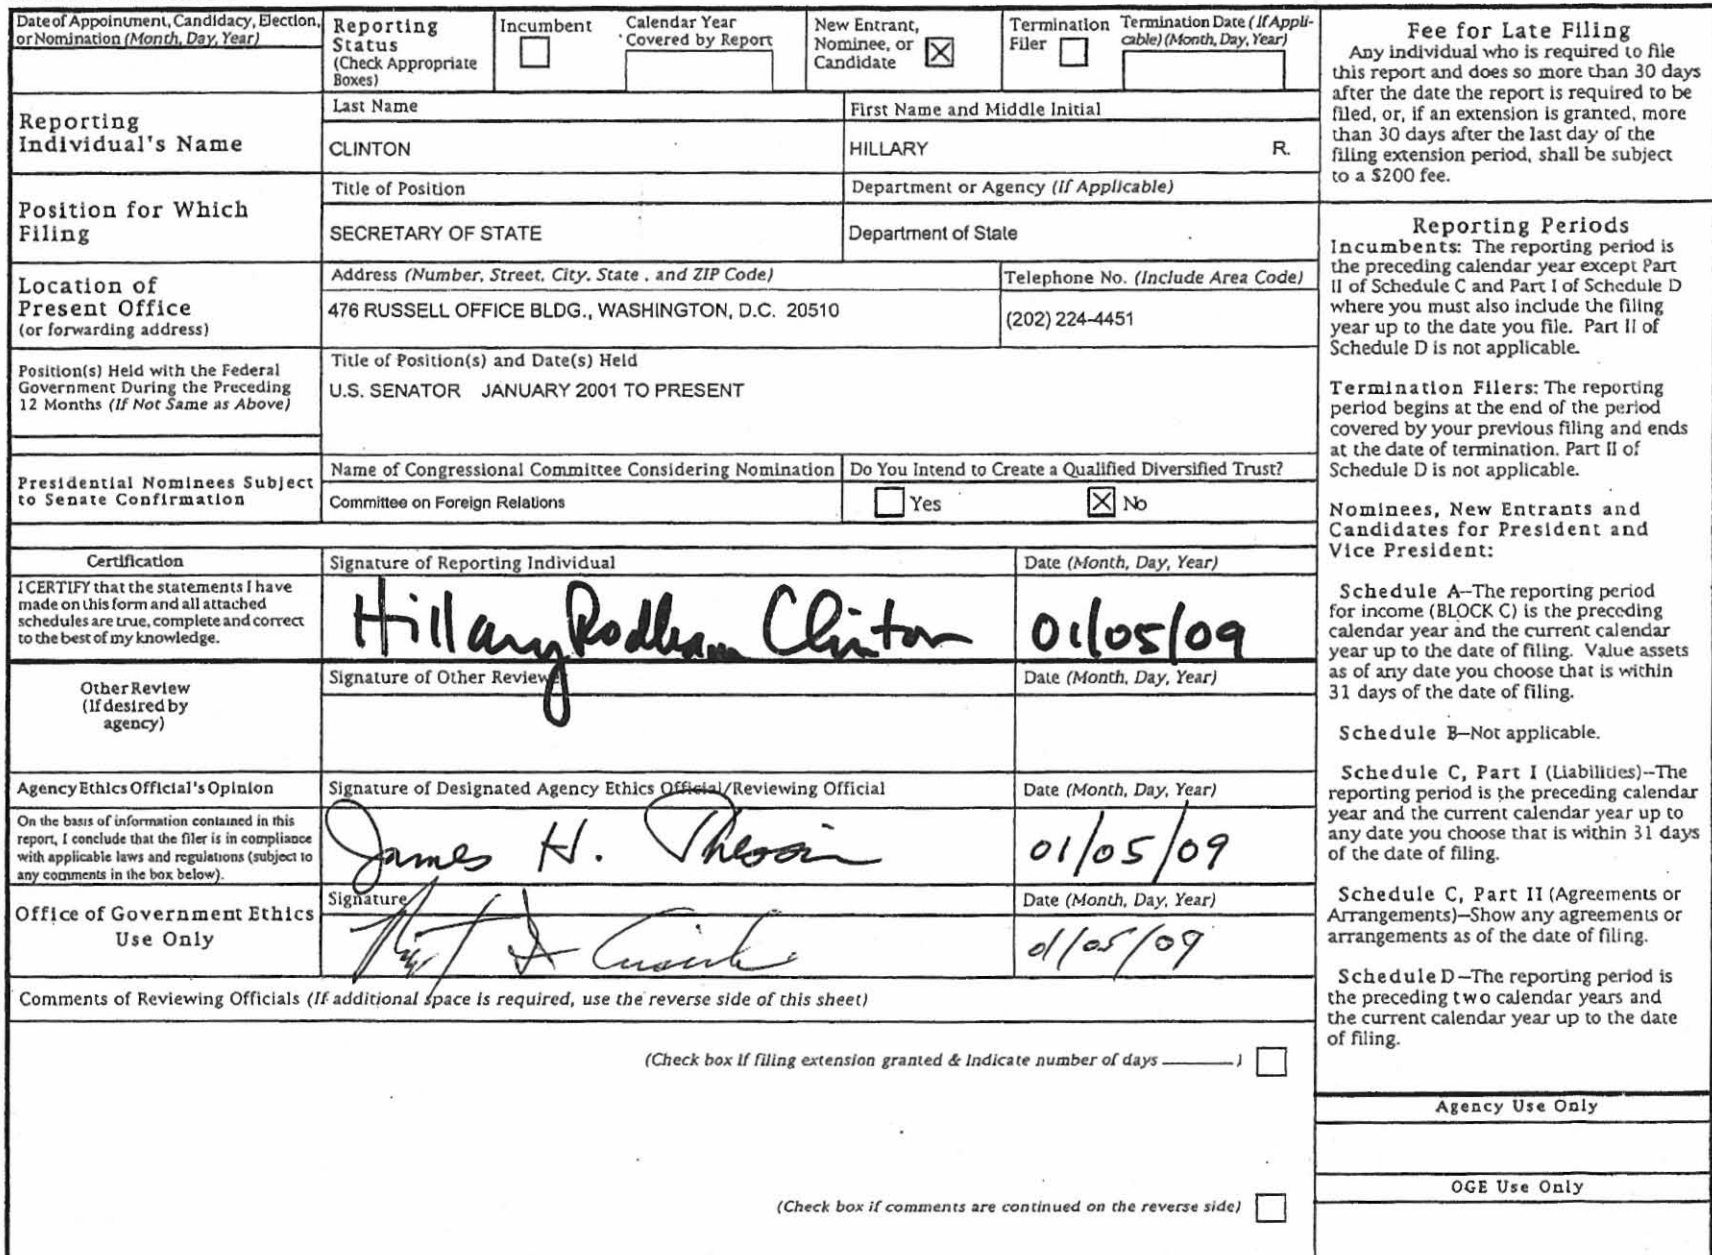 Date of Appointment, Candidacy, Election,
or Nomination (Month, Day, Year)
Reporting
Status
(Check Appropriate
Boxes)
Incumbent
Calendar Year
Covered by Report
New Entrant,
Nominee, or
Candidate
Termination
Filer
Termination Date (If Appli-
cable) (Month, Day, Year)
Reporting
Individual's Name
Last Name
CLINTON
First Name and Middle Initial
HILLARY R.
Position for Which
Filing
Title of Position
SECRETARY OF STATE
Department or Agency (If Applicable)
Department of State
Location of
Present Office
(or forwarding address)
Address (Number, Street, City, State, and ZIP Code)
476 RUSSELL OFFICE BLDG., WASHINGTON, D.C. 20510
Telephone No. (Include Area Code)
(202) 224-4451
Position(s) Held with the Federal
Government During the Preceding
12 Months (If Not Same as Above)
Title of Position(s) and Date(s) Held
U.S. SENATOR JANUARY 2001 TO PRESENT
Presidential Nominees Subject
to Senate Confirmation
Name of Congressional Committee Considering Nomination
Committee on Foreign Relations
Do You Intend to Create a Qualified Diversified Trust?
Yes No
Certification
I CERTIFY that the statements I have
made on this form and all attached
schedules are true, complete and correct
to the best of my knowledge.
Signature of Reporting Individual
Hillary Rodham Clinton
Date (Month, Day, Year)
01/05/09
Other Review
(If desired by
agency)
Signature of Other Reviewe
Date (Month, Day, Year)
Agency Ethics Official's Opinion
On the basis of information contained in this
report, I conclude that the filer is in compliance
with applicable laws and regulations (subject to
any comments in the box below).
Signature of Designated Agency Ethics Official/Reviewing Official
James H.
Date (Month, Day, Year)
01/05/09
Office of Government Ethics
Use Only
Signature
Date (Month, Day, Year)
01/05/09
Comments of Reviewing Officials (If additional space is required, use the reverse side of this sheet)
(Check box if filing extension granted & indicate number of days ______)
(Check box if comments are continued on the reverse side)
Fee for Late Filing
Any individual who is required to file
this report and does so more than 30 days
after the date the report is required to be
filed, or, if an extension is granted, more
than 30 days after the last day of the
filing extension period, shall be subject
to a $200 fee.
Reporting Periods
Incumbents: The reporting period is
the preceding calendar year except Part
II of Schedule C and Part I of Schedule D
where you must also include the filing
year up to the date you file. Part II of
Schedule D is not applicable.
Termination Filers: The reporting
period begins at the end of the period
covered by your previous filing and ends
at the date of termination. Part II of
Schedule D is not applicable.
Nominees, New Entrants and
Candidates for President and
Vice President:
Schedule A--The reporting period
for income (BLOCK C) is the preceding
calendar year and the current calendar
year up to the date of filing. Value assets
as of any date you choose that is within
31 days of the date of filing.
Schedule B--Not applicable.
Schedule C, Part I (Liabilities)--The
reporting period is the preceding calendar
year and the current calendar year up to
any date you choose that is within 31 days
of the date of filing.
Schedule C, Part II (Agreements or
Arrangements)--Show any agreements or
arrangements as of the date of filing.
Schedule D--The reporting period is
the preceding two calendar years and
the current calendar year up to the date
of filing.
Agency Use Only
OGE Use Only